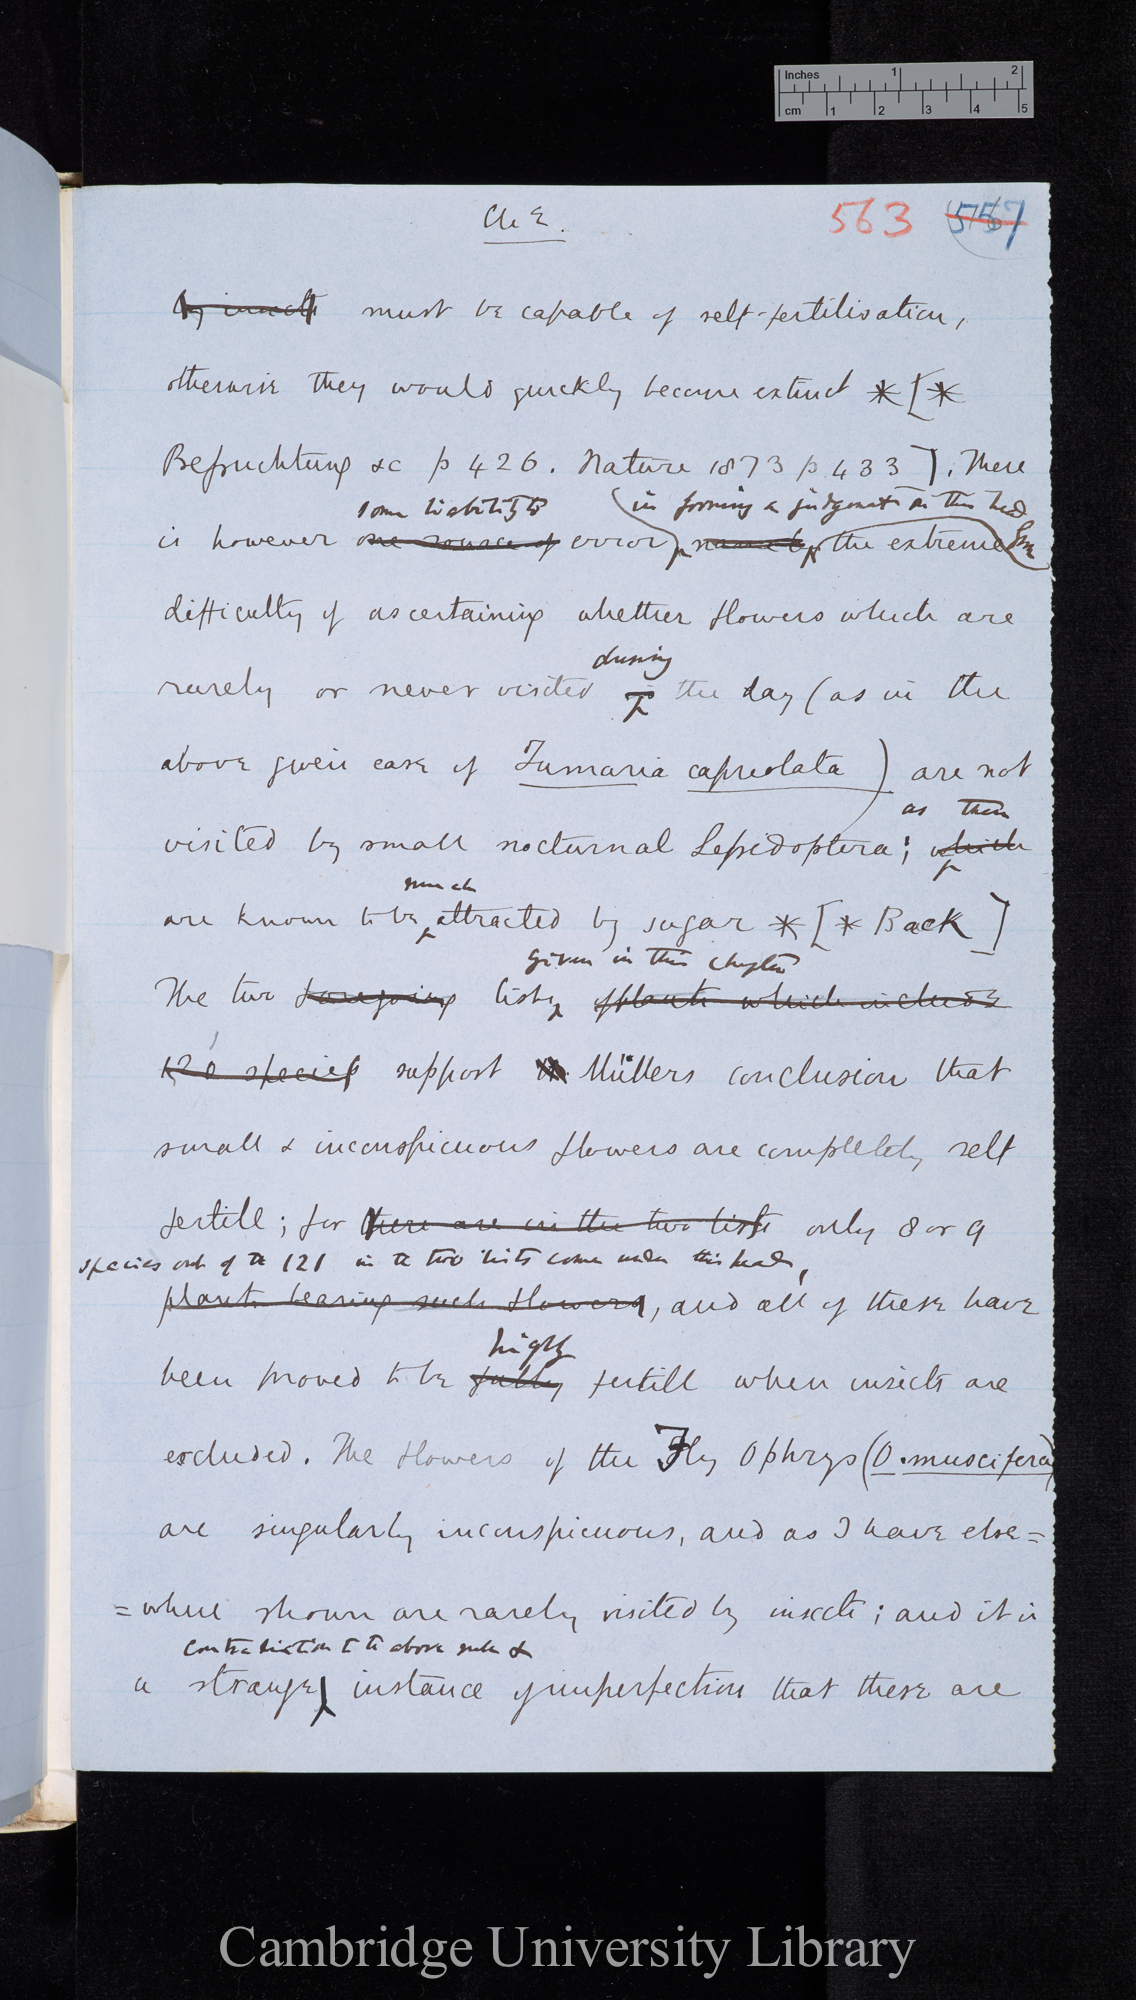 Inches 1 2
cm 1 2 3 4 5
Ch E. 563 557
by insects must be capable of self-fertilisation,
otherwise they would quickly become extinct * [*
Befruchtung &c p 426. Nature 1873 p 433]. There
some liability to in forming a judgment on this head from
is however one source of error, namely, the extreme
difficulty of ascertaining whether flowers which are
during
rarely or never visited in the day (as in the
above given case of Fumaria capreolata) are not
as these
visited by small nocturnal Lepidoptera; which
much
are known to be attracted by sugar * [* Back]
given in this chapter
The two foregoing lists, of plants which include
120 species support Müllers conclusion that
small & inconspicuous flowers are completely self
fertile; for there are in the two lists only 8 or 9
species out of the 121 in the two lists come under this head,
plants bearing such flowers, and all of these have
highly
been proved to be fully fertile when insects are
excluded. The flowers of the Fly Ophrys (O. muscifera)
are singularly inconspicuous, and as I have else=
=where shown are rarely visited by insects; and it is
contradiction to the above rule &
a strange instance of imperfection that these are
Cambridge University Library